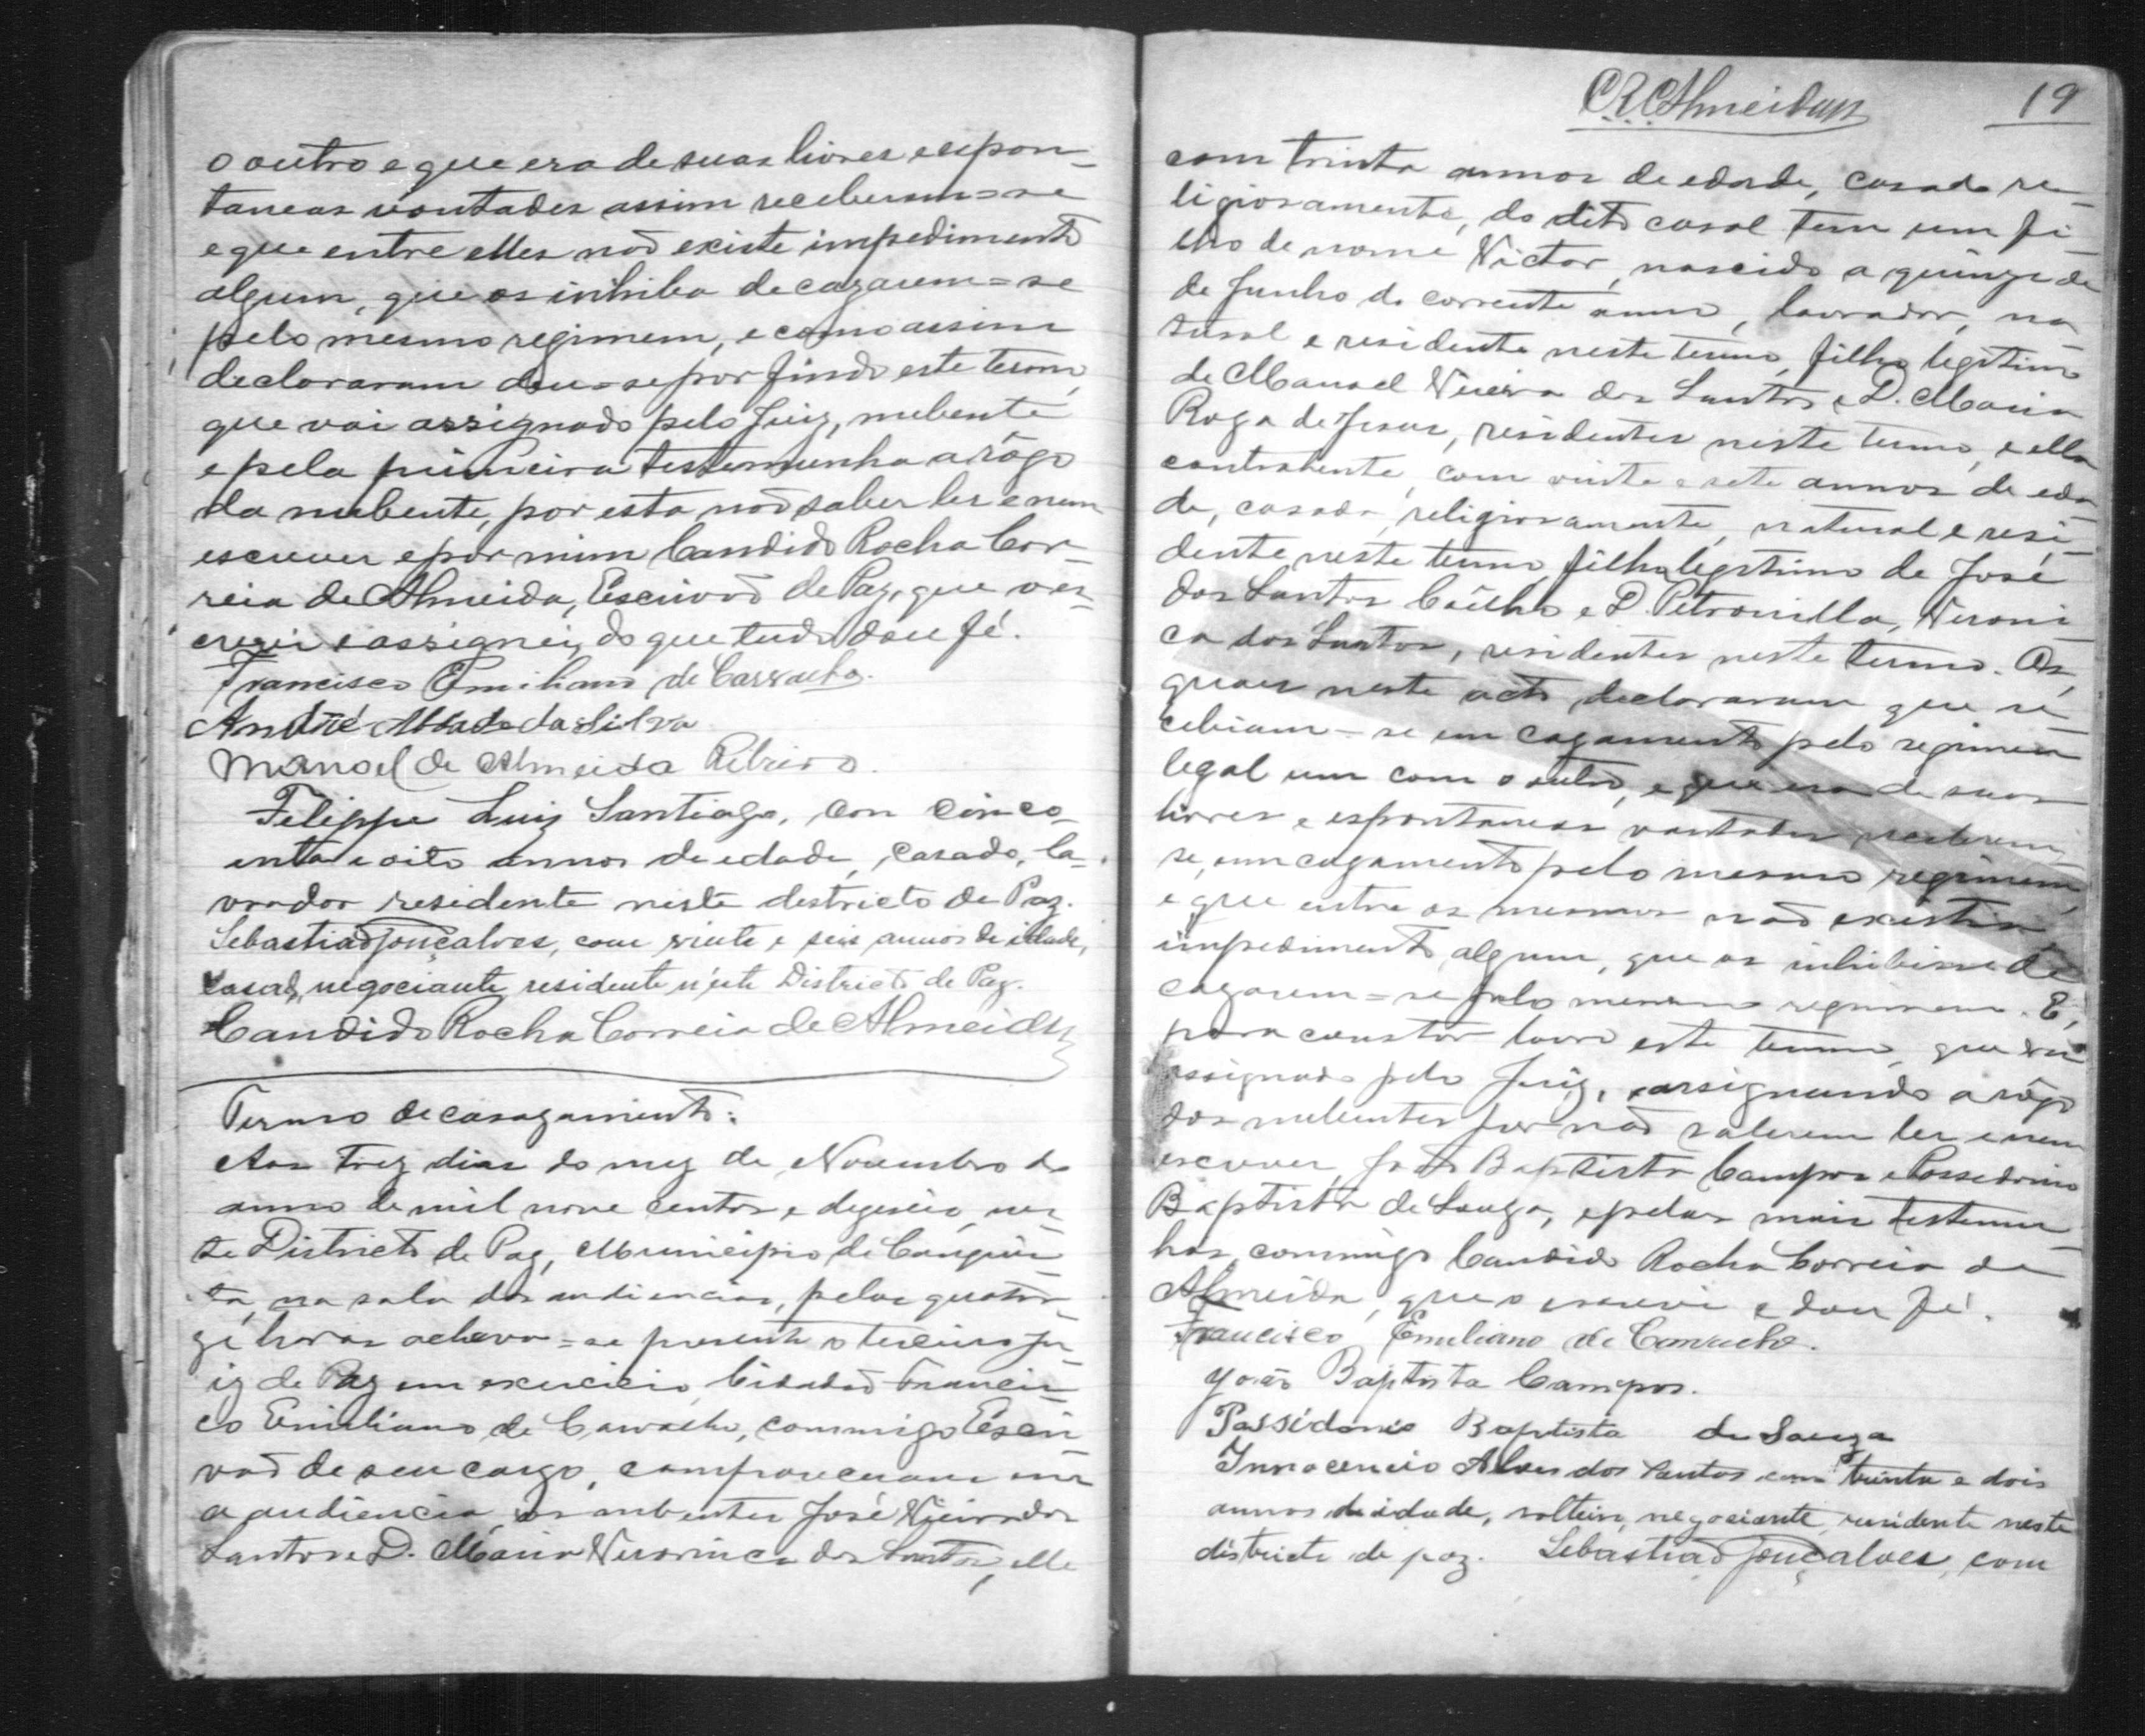 o outro e que era de suas livres e espon-
taneas vontades assim receberam=se
e que entre elles não existe impedimento
algum, que os inhiba de cazarem=se
pelo mesmo regimem, e como assim
declararam dou=se por findo este termo,
que vai assignado pelo Juiz, nubente
e pela primeira testemunha a rôgo
da nubente, por esta não saber ler e nem
escrever e por mim Candido Rocha Cor-
reia de Almeida, Escrivão de Paz, que o es-
crevi e assignei, do que tudo dou fé.
Francisco Emiliano de Carvalho.
André da Silva
Manoel de Almeida Ribeiro.
Filippe Luiz Santiago, con cinco-
enta e oito annos de edade, casado, la-
vrador residente neste destricto de Paz.
Sebastião Gonçalves, com vinte e seis annos de idade,
casado, negociante, residente n'este Districto de Paz.
Candido Rocha Correia de Almeida
Termo de casazamento:
Aos trez dias do mez de Novembro do
anno de mil nove centos e dezeseis, nes-
te Districto de Paz, Municipio de
na sala das audiencias, pelas quator-
ze horas achava=se presente o terceiro Ju-
iz de Paz em exercicio, Cidadão Francis-
co Emiliano de Carvalho, commigo Escri-
vão de seu cargo, compareceram
a audiencia, os nubentes José Vieira dos
Santos e D. Maria Veronica dos Santos, elle
CRCAlmeida 19
com trinta annos de edade, casado re-
ligiosamente, do dito casal tem um fi-
lho de nome Victor, nascido a quinze de
de Junho do corrente anno, lavrador, na-
tural e residente neste termo, filho legitimo
de Manoel Vieira dos Santos e D. Maria
Roza de Jesus, residentes neste termo, e ella
contrahente, com vinte e sete annos de eda-
de, casada religiosamente, natural e resi-
dente neste termo, filha legitima de José
dos Santos Coêlho e D. Petronilla Veroni-
ca dos Santos, residentes neste termo. Os
quaes neste acto declararam que re-
cebiam=se em cazamento pelo regimem
legal um com o outro, e que era de suas
livres e espontaneas vontades receberem-
se, em cazamento pelo mesmo regimem,
e que entre os mesmos não existia
impedimento algum, que os inhibisse de
cazarem=se pelo mesmo regimem. E,
para constar lavro este termo, que vai
assignado pelo Juiz, assignando a rôgo
dos nubentes por não saberem ler e nem
escrever, João Baptista Campos e Possedonio
Baptista de Souza, e pelas mais testemu-
has, commigo Candido Rocha Correia de
Almeida, que o escrevi e dou fé.
Francisco Emiliano de Carvalho.
João Baptista Campos.
Possidonio Baptista de Souza
Innocencio Alves dos Santos com trinta e dois
annos de idade, solteiro, negociante, residente neste
districto de paz. Sebastião Gonçalves, com